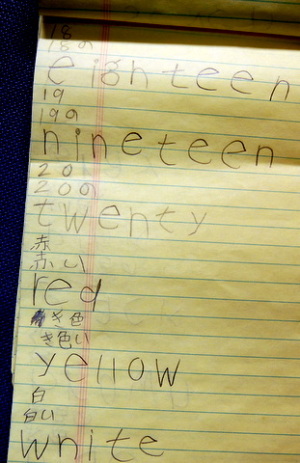 18
18の
eighteen
19
19の
nineteen
20
20の
twenty
赤
赤い
red
き色
き色い
yellow
白
白い
white